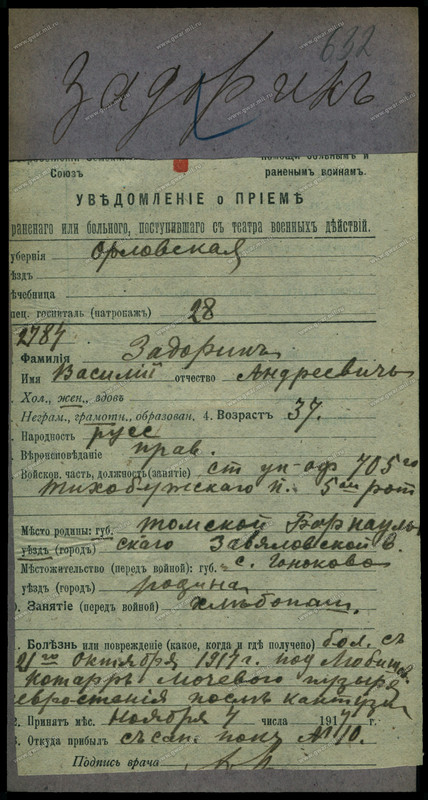 632
Задорикъ
Союзъ
помощи больнымъ и
раненымъ воинамъ.
УВѢДОМЛЕНІЕ о ПРІЕМѢ
раненаго или больного, поступившаго съ театра военныхъ дѣйствій.
губернія Орловская
уѣздъ
лѣчебница
спец. госпиталь (патронажъ) 28
2784
Фамилія Задоринъ
Имя Василій отчество Андреевичъ
Хол., жен., вдовъ
Неграм., грамотн., образован. 4. Возрастъ 37.
Народность русс
Вѣроисповѣданіе прав.
Войсков. часть, должность (занятіе) ст ун-оф 705го
Тихобужскаго п. 5ой рот
Мѣсто родины: губ. Томской Барнауль
уѣздъ (городъ) скаго Завяловской в.
Мѣстожительство (передъ войной): губ. с. Гоноково
уѣздъ (городъ) родина
Занятіе (передъ войной) хлѣбопаш.
Болѣзнь или поврежденіе (какое, когда и гдѣ получено) бол. съ
21го Октября 1917 г. под
катарръ мочевого пузыря
невростенія послѣ кантузіи
Принятъ мѣс. Ноября 7 числа 1917 г.
Откуда прибылъ съ сан. поѣз № 10.
Подпись врача
www.gwar.mil.ru